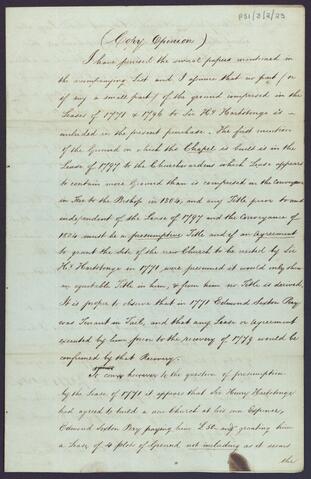 P51/2/2/25
(Copy Opinion)
I have perused the several papers mentioned in
the accompanying List and I assume that no part / or
if any a small part / of the ground comprised in the
Leases of 1771 & 1796 to Sir Hy Hartstonge is
included in the present purchase. The first mention
of the Ground on which the Chapel is built is in the
Lease of 1797 to the Churchwardens which Lease appears
to contain more Ground than is comprised in the conveyance
in Fee to the Bishop in 1824, and any Title prior to and
independent of the Lease of 1797 and the Conveyance of
1824 must be a presumptive Title and if an agreement
to grant the Site of the new Church to be erected by Sir
Hy Hartstonge in 1771 were presumed it would only shew
an equitable Title in him, & from him no Title is derived.
It is proper to observe that in 1771 Edmund Sexton Pery
was Tenant in Tail, and that any Lease or agreement
executed by him prior to the recovery of 1779 would be
confirmed by that Recovery.
To come however to the question of presumption
by the Lease of 1771 it appears that Sir Henry Hartstonge
had agreed to build a new Church at his own Expence,
Edmund Sexton Pery paying him £ St. and granting him
a Lease of 4 plots of Ground not including as it seems
the